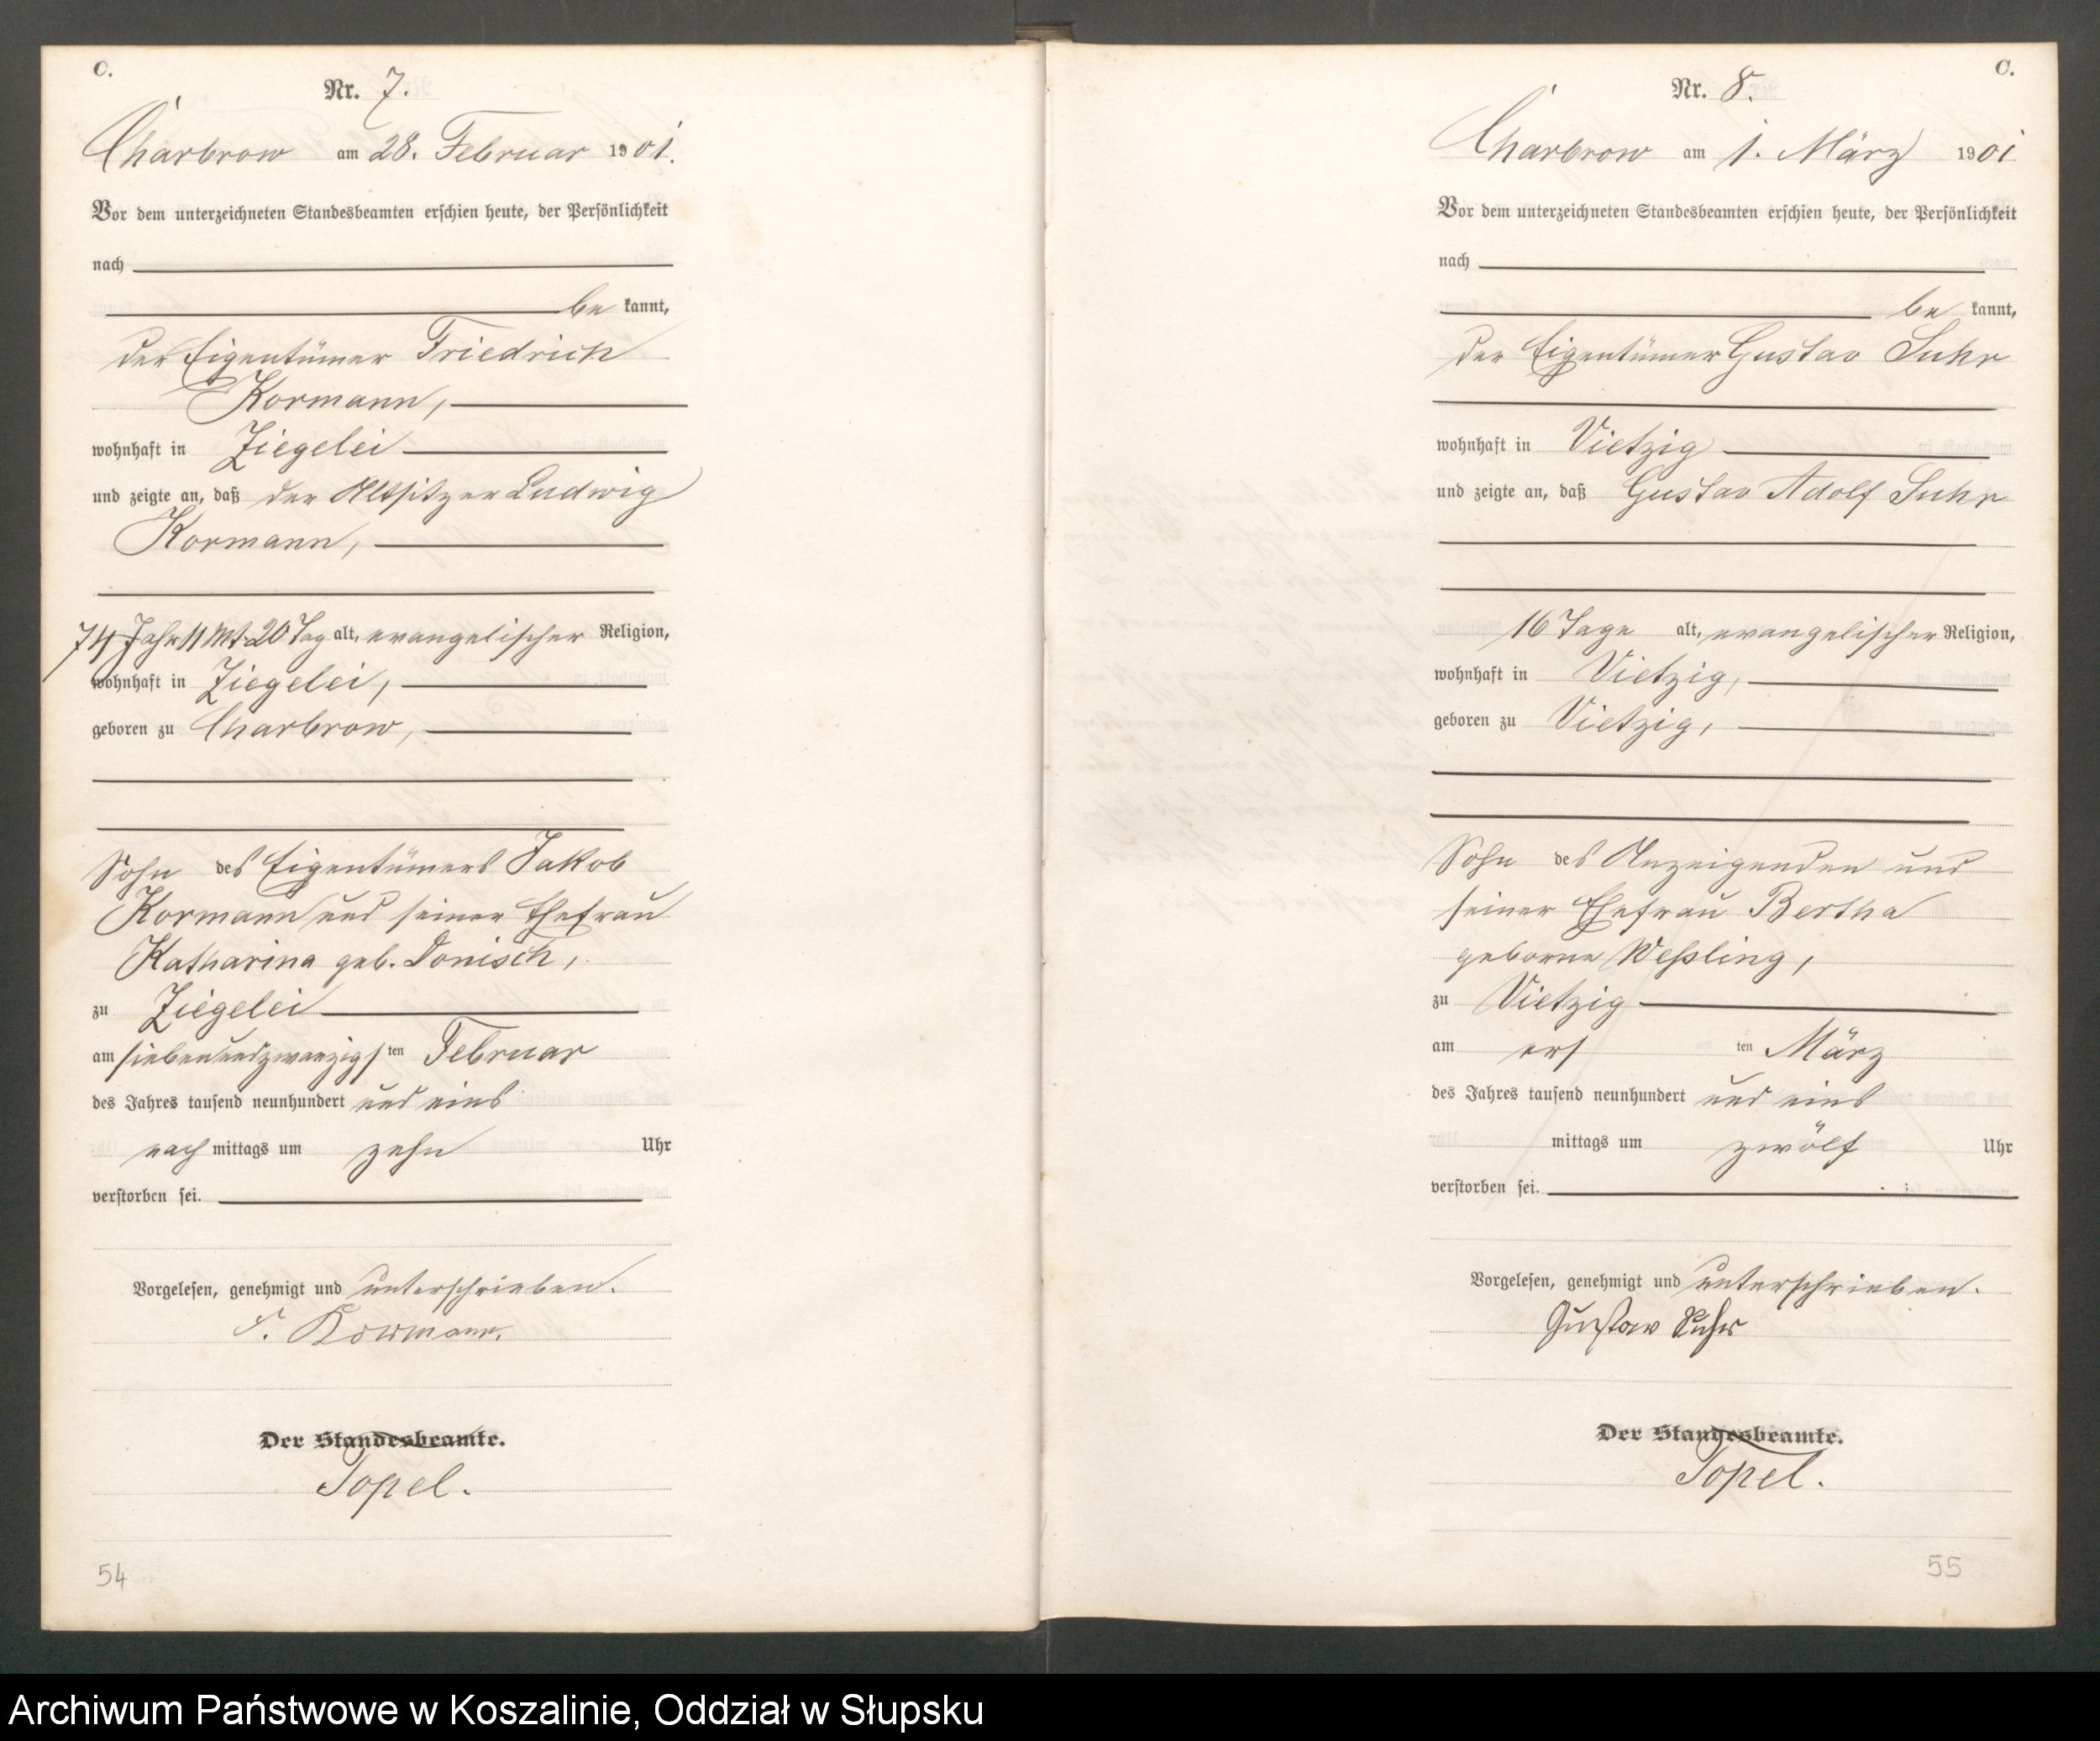 C.
Nr. 7.
Charbrow am 28. Februar 1901.
Vor dem unterzeichneten Standesbeamten erschien heute, der Persönlichkeit
nach
be kannt,
der Eigentümer Friedrich
Kormann,
wohnhaft in Ziegelei
und zeigte an, daß der Altsitzer Ludwig
Kormann,
74 Jahr 11 Mt. 20 Tag alt, evangelischer Religion,
wohnhaft in Ziegelei,
geboren zu Charbrow,
Sohn des Eigentümers Jakob
Kormann und seiner Ehefrau
Katharina geb. Donisch,
zu Ziegelei
am siebenundzwanzigsten Februar
des Jahres tausend neunhundert und eins
nach mittags um zehn Uhr
verstorben sei.
Vorgelesen, genehmigt und unterschrieben.
F. Kormann.
Der Standesbeamte.
Topel.
54
C.
Nr. 8.
Charbrow am 1. März 1901
Vor dem unterzeichneten Standesbeamten erschien heute, der Persönlichkeit
nach
be kannt,
der Eigentümer Gustav Suhr
wohnhaft in Vietzig
und zeigte an, daß Gustav Adolf Suhr
16 Tage alt, evangelischer Religion,
wohnhaft in Vietzig,
geboren zu Vietzig,
Sohn des Anzeigenden und
seiner Ehefrau Bertha
geborne Weßling,
zu Vietzig
am ersten März
des Jahres tausend neunhundert und eins
mittags um zwölf Uhr
verstorben sei.
Vorgelesen, genehmigt und unterschrieben.
Gustav Suhr
Der Standesbeamte.
Topel.
55
Archiwum Państwowe w Koszalinie, Oddział w Słupsku